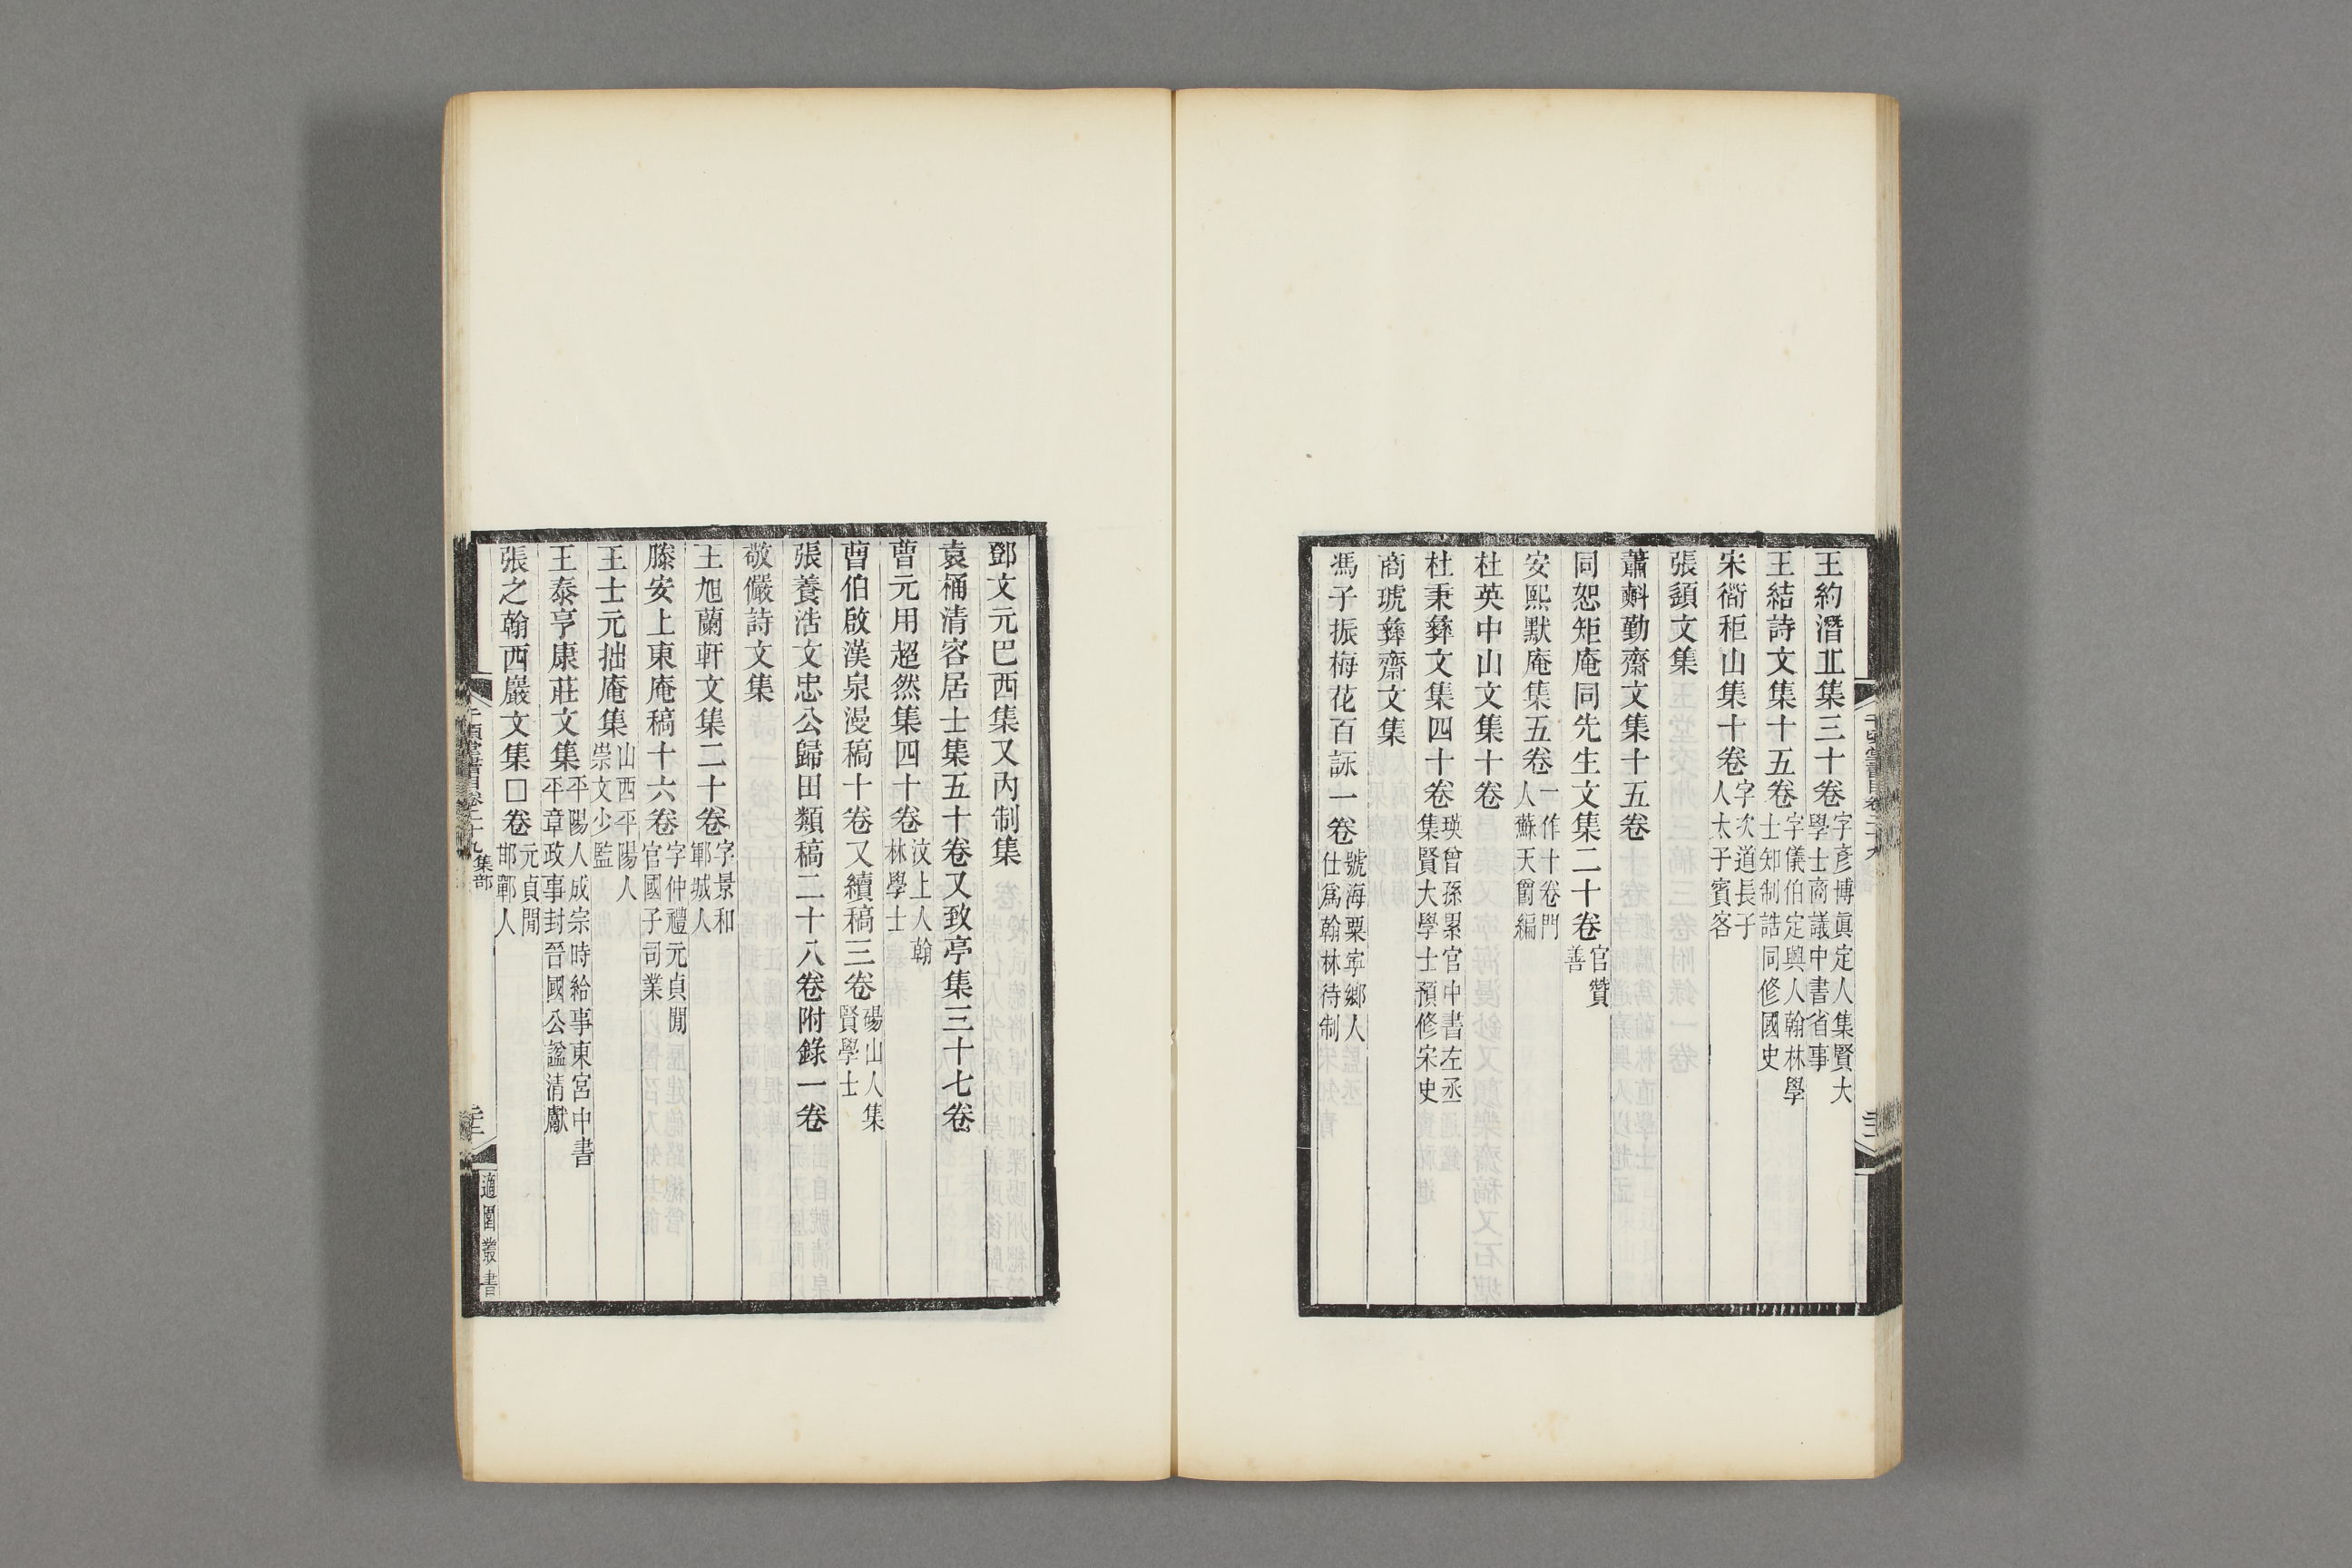 王約潛丠集三十卷字彥博眞定人集賢大學士商議中書省事
王結詩文集十五卷字儀伯定興人翰林學士知制誥同修國史
宋衟秬山集十卷字次道長子人太子賓客
張䪴文集
蕭㪺勤齋文集十五卷
同恕矩庵同先生文集二十卷官贊善
安熙默庵集五卷一作十卷門人蘇天爵編
杜英中山文集十卷
杜秉彝文集四十卷瑛曾孫累官中書左丞集賢大學士預修宋史
商琥彝齋文集
馮子振梅花百詠一卷號海粟寧鄉人仕爲翰林待制
鄧文元巴西集又內制集
袁桷清容居士集五十卷又致亭集三十七卷
曹元用超然集四十卷汶上人翰林學士
曹伯啟漢泉漫稿十卷又續稿三卷碭山人集賢學士
張養浩文忠公歸田類稿二十八卷附錄一卷
敬儼詩文集
王旭蘭軒文集二十卷字景和鄆城人
滕安上東庵稿十六卷字仲禮元貞閒官國子司業
王士元拙庵集山西平陽人崇文少監
王泰亨康莊文集平陽人成宗時給事東宮中書平章政事封晉國公諡清獻
張之翰西巖文集□卷元貞閒邯鄲人
千頃堂書目卷二十九 集部
適園叢書